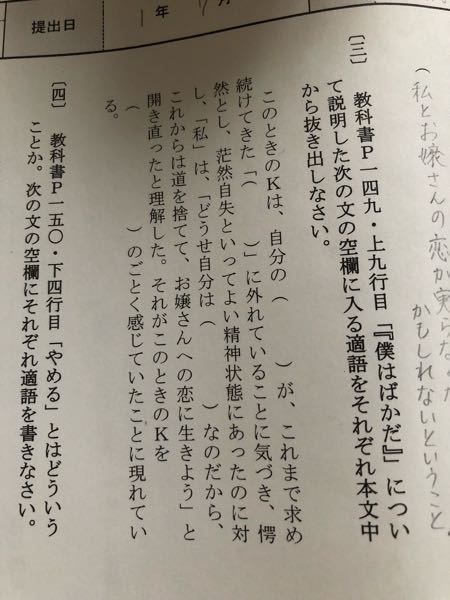 提出日
1年
月
(私とお嬢さんの恋が実らな
かもしれないということ。
〔三〕 教科書P一四九・上九行目「『僕はばかだ』」につい
て説明した次の文の空欄に入る適語をそれぞれ本文中
から抜き出しなさい。
このときのKは、自分の( )が、これまで求め
続けてきた「( )」に外れていることに気づき、愕
然とし、茫然自失といってよい精神状態にあったのに対
し、「私」は、「どうせ自分は( )なのだから、
これからは道を捨てて、お嬢さんへの恋に生きよう」と
開き直ったと理解した。それがこのときのKを
( )のごとく感じていたことに現れてい
る。
〔四〕 教科書P一五〇・下四行目「やめる」とはどういう
ことか。次の文の空欄にそれぞれ適語を書きなさい。